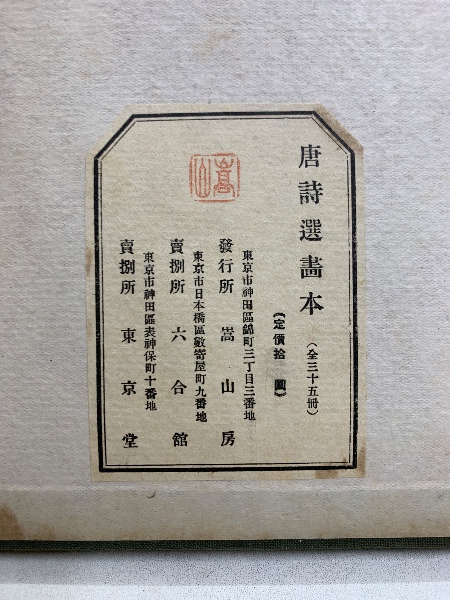 唐詩選畫本（全三十五冊）
《定價拾圓》
東京市神田區錦町三丁目三番地
發行所 嵩山房
東京市日本橋區數寄屋町九番地
賣捌所 六合館
東京市神田區表神保町十番地
賣捌所 東京堂